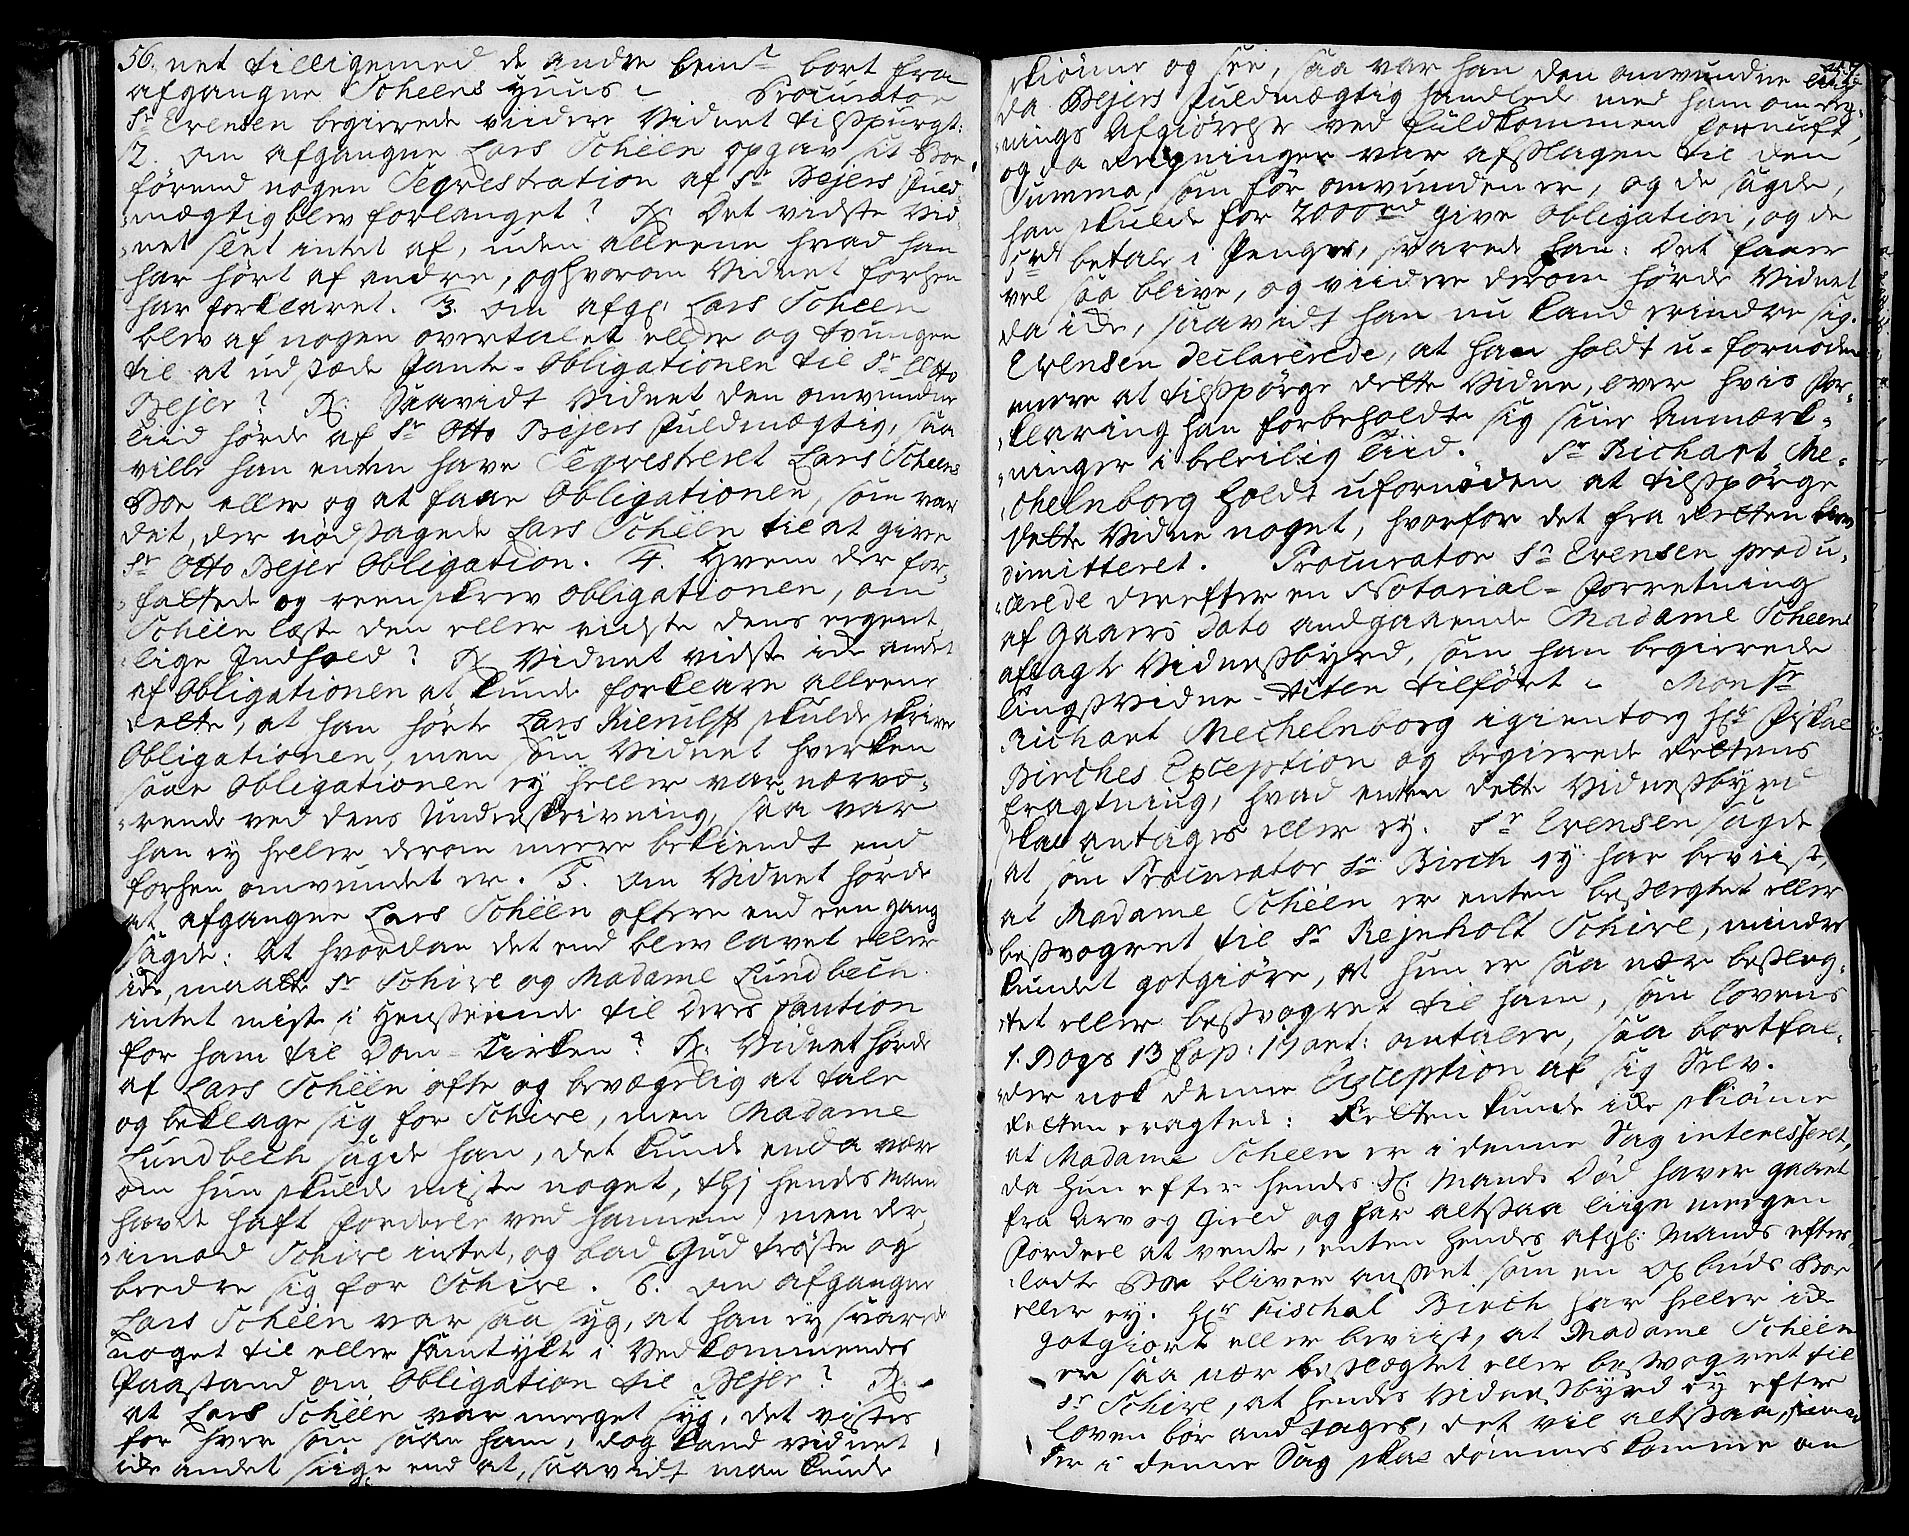 56. net tilligemed de andre bem.te bort fra
afgangne Scheens Huus. Procurator
Sr Evensen begierede viidere Vidnet tilspurgt:
2. Om afgangne Lars Schëen opgav sit Boe
førend nogen Seqvestration af Sr Bejers Fuld¬
mægtig blev forlanget? R. Det vidste Vid¬
net slet intet af, uden alleene hvad han
har hørt af andre, og hvorom Vidnet forhen
har forklaret. 3. Om afg: Lars Schëen
blev af nogen overtalet eller og tvungen
til at udstæde Pante-Obligationen til Sr Otto
Bejer? R. Saavidt Vidnet den omvundne
tiid hørde af Sr Otto Bejers Fuldmægtig, saa
ville han enten have Seqvestreret Lars Scheens
Boe eller og at faae Obligationen, som var
det, der nødsagede Lars Schëen til at give
Sr Otto Bejer Obligation. 4. Hvem der for¬
fattede og reenskrev Obligationen, om
Schëen læste den eller vidste dens eigent
lige Indhold? R. Vidnet vidste icke andet
af Obligationen at kunde forklare alleene
dette, at han hørte Lars Kierulff skulde skrive
Obligationen, men som Vidnet hverken
saae Obligationen ey heller var nærvæ¬
rende ved dens Underskrivning, saa var
han ey heller derom meere bekiendt end
forhen omvundet er. 5. Om Vidnet hørde
at afgangne Lars Schëen oftere end een gang
sagde: At hvordan det end blev lavet eller
icke, maatte Sr Schive og Madame Lundbech
intet miste i Henseende til deres Caution
for ham til Dom-Kirken? R. Vidnet hørde
af Lars Schëen ofte og bevægelig at tale
og beklage sig for Schive, men Madame
Lundbech sagde han, det kunde enda være
om hun skulde miste noget, thj hendes Mand
havde haft Fordeele ved hannem, men der
imod Schive intet, og bad Gud trøste og
bedre sig for Schive. 6. Om afgangne
Lars Schëen var saa syg, at han ey svarede
noget til eller samtykte i Vedkommendes
Paastand om Obligation til Bejer? R.
at Lars Schëen var meget syg, det vistes
for hver som saae ham, dog kand Vidnet
icke andet siige end at, saavidt man kunde
skiønne og see, saa var han den omvundne tiid
da Bejers Fuldmægtig handlede med ham om Reg¬
nings Afgiørelse ved fuldkommen Fornuft,
og da Regningen var afslagen til den
Summa, som før omvunden er, og de sagde,
han skulde for 2000 rd give Obligation, og de
betale i Penger, svarede han: Det faaer
vel saa blive, og viidere derom hørde Vidnet
da icke, saavidt han nu kand erindre sig.
Evensen declarerede, at han holdt u-fornøden
meere at tilspørge dette Vidne, over hvis For¬
klaring han forbeholdte sig sine Anmærk¬
ninger i beleilig Tiid. Sr Richart Me¬
chelnborg holdt ufornøden at tilspørge
dette Vidne noget, hvorfor det fra Retten blev
dimitteret. Procurator Sr Evensen produ¬
cerede derefter en Notarial-Forretning
af Gaars Dato andgaaende Madame Scheens
aflagte Vidnesbyrd, som han begierede
TingsVidne-Acten tilført. Monsr
Richart Mechelnborg igientog Hr Fiskal
Birches Exception og begierede Rettens
Eragtning, hvad enten dette Vidnesbyrd
skal antages eller ey. Sr Evensen sagde
at som Procurator Sr Birch ey har beviist,
at Madame Schëen er enten beslegtet eller
besvogret til Sr Rejnholt Schive, mindre
kundet gotgiøre, at hun er saa nær besleg¬
tet eller besvogret til ham, som Lovens
1. Bogs 13 Cap: 17 art: ommelder, saa bortfal¬
der nok denne Exception af sig Selv.
Retten eragtede: Retten kunde icke skiønne
at Madame Scheen er i denne Sag interesseret,
da hun efter hendes Sl: Mands Død haver gaaet
fra Arv og Gield og har altsaa liige meegen
Fordeel at vente, enten hendes afg: Mands efter¬
ladte Boe bliver anseet som en Opbuds Boe
eller ey. Hr Fischal Birch har heller icke
gotgiort eller beviist, at Madame Schëen
er saa nær beslægtet eller besvogret til
Sr Schive, at hendes Vidnesbyrd ey efter
Loven bør andtages, det vil altsaa,
der i denne Sag skal dømmes komme an